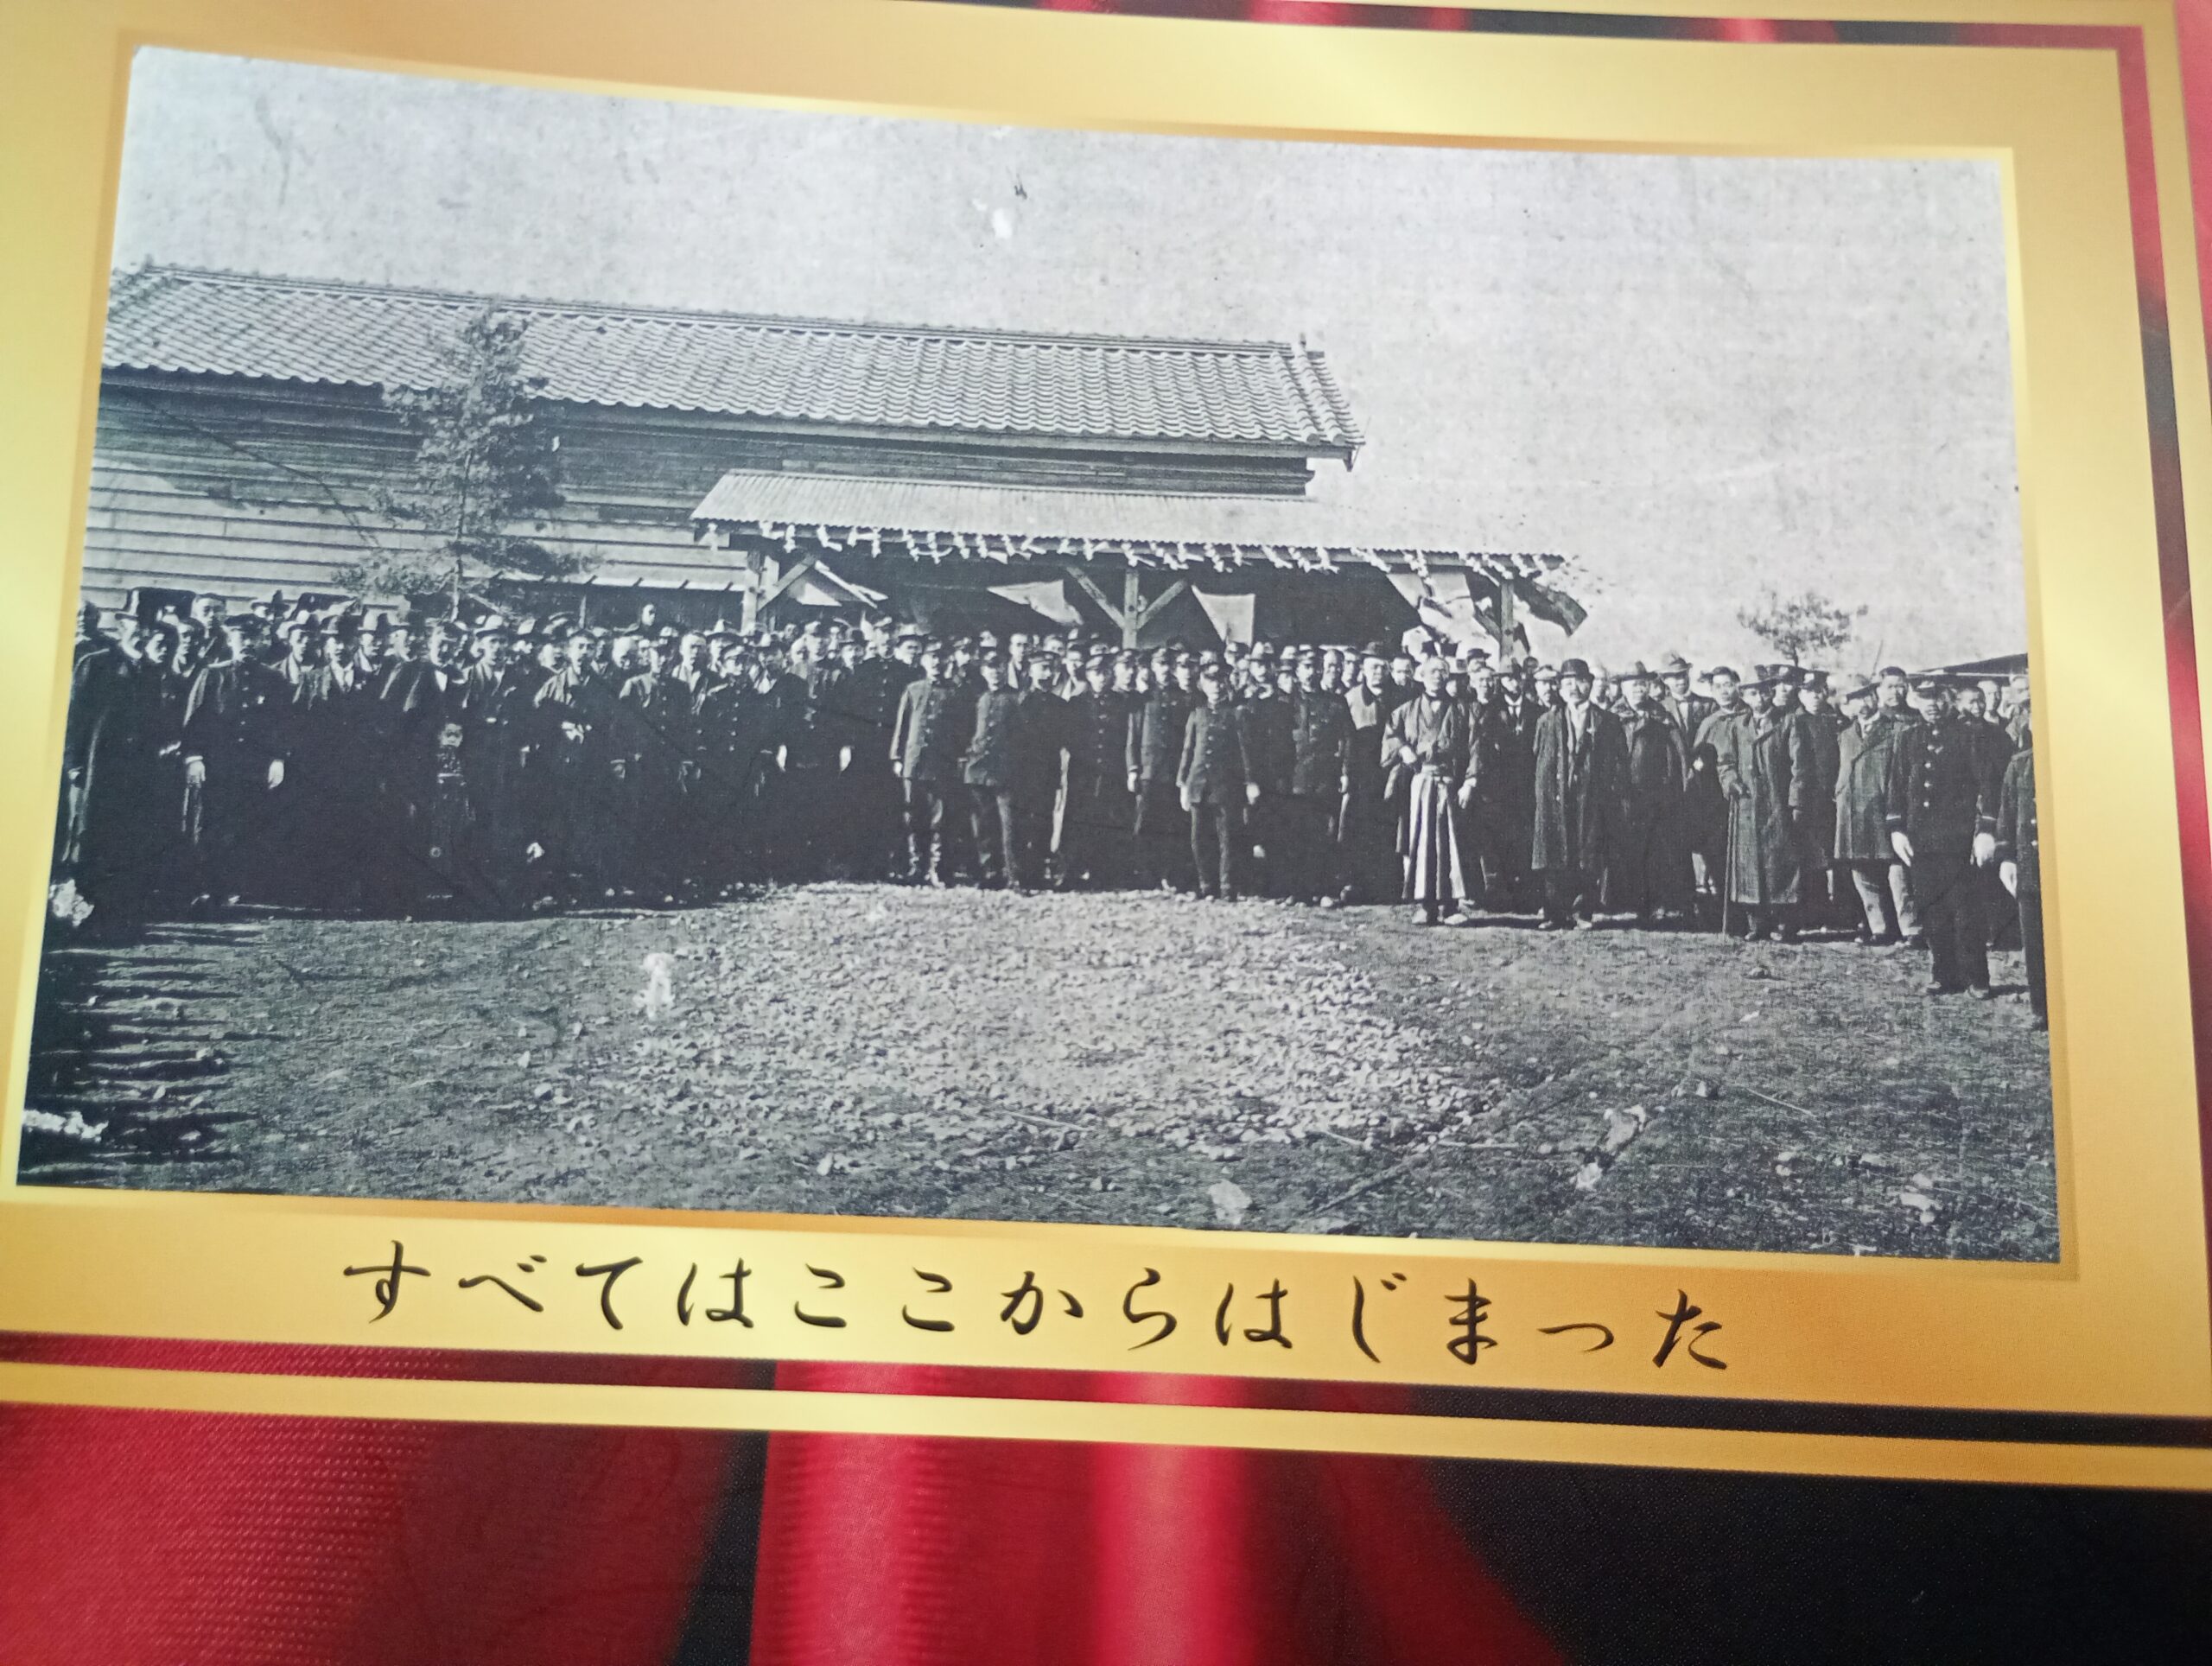 すべてはここからはじまった